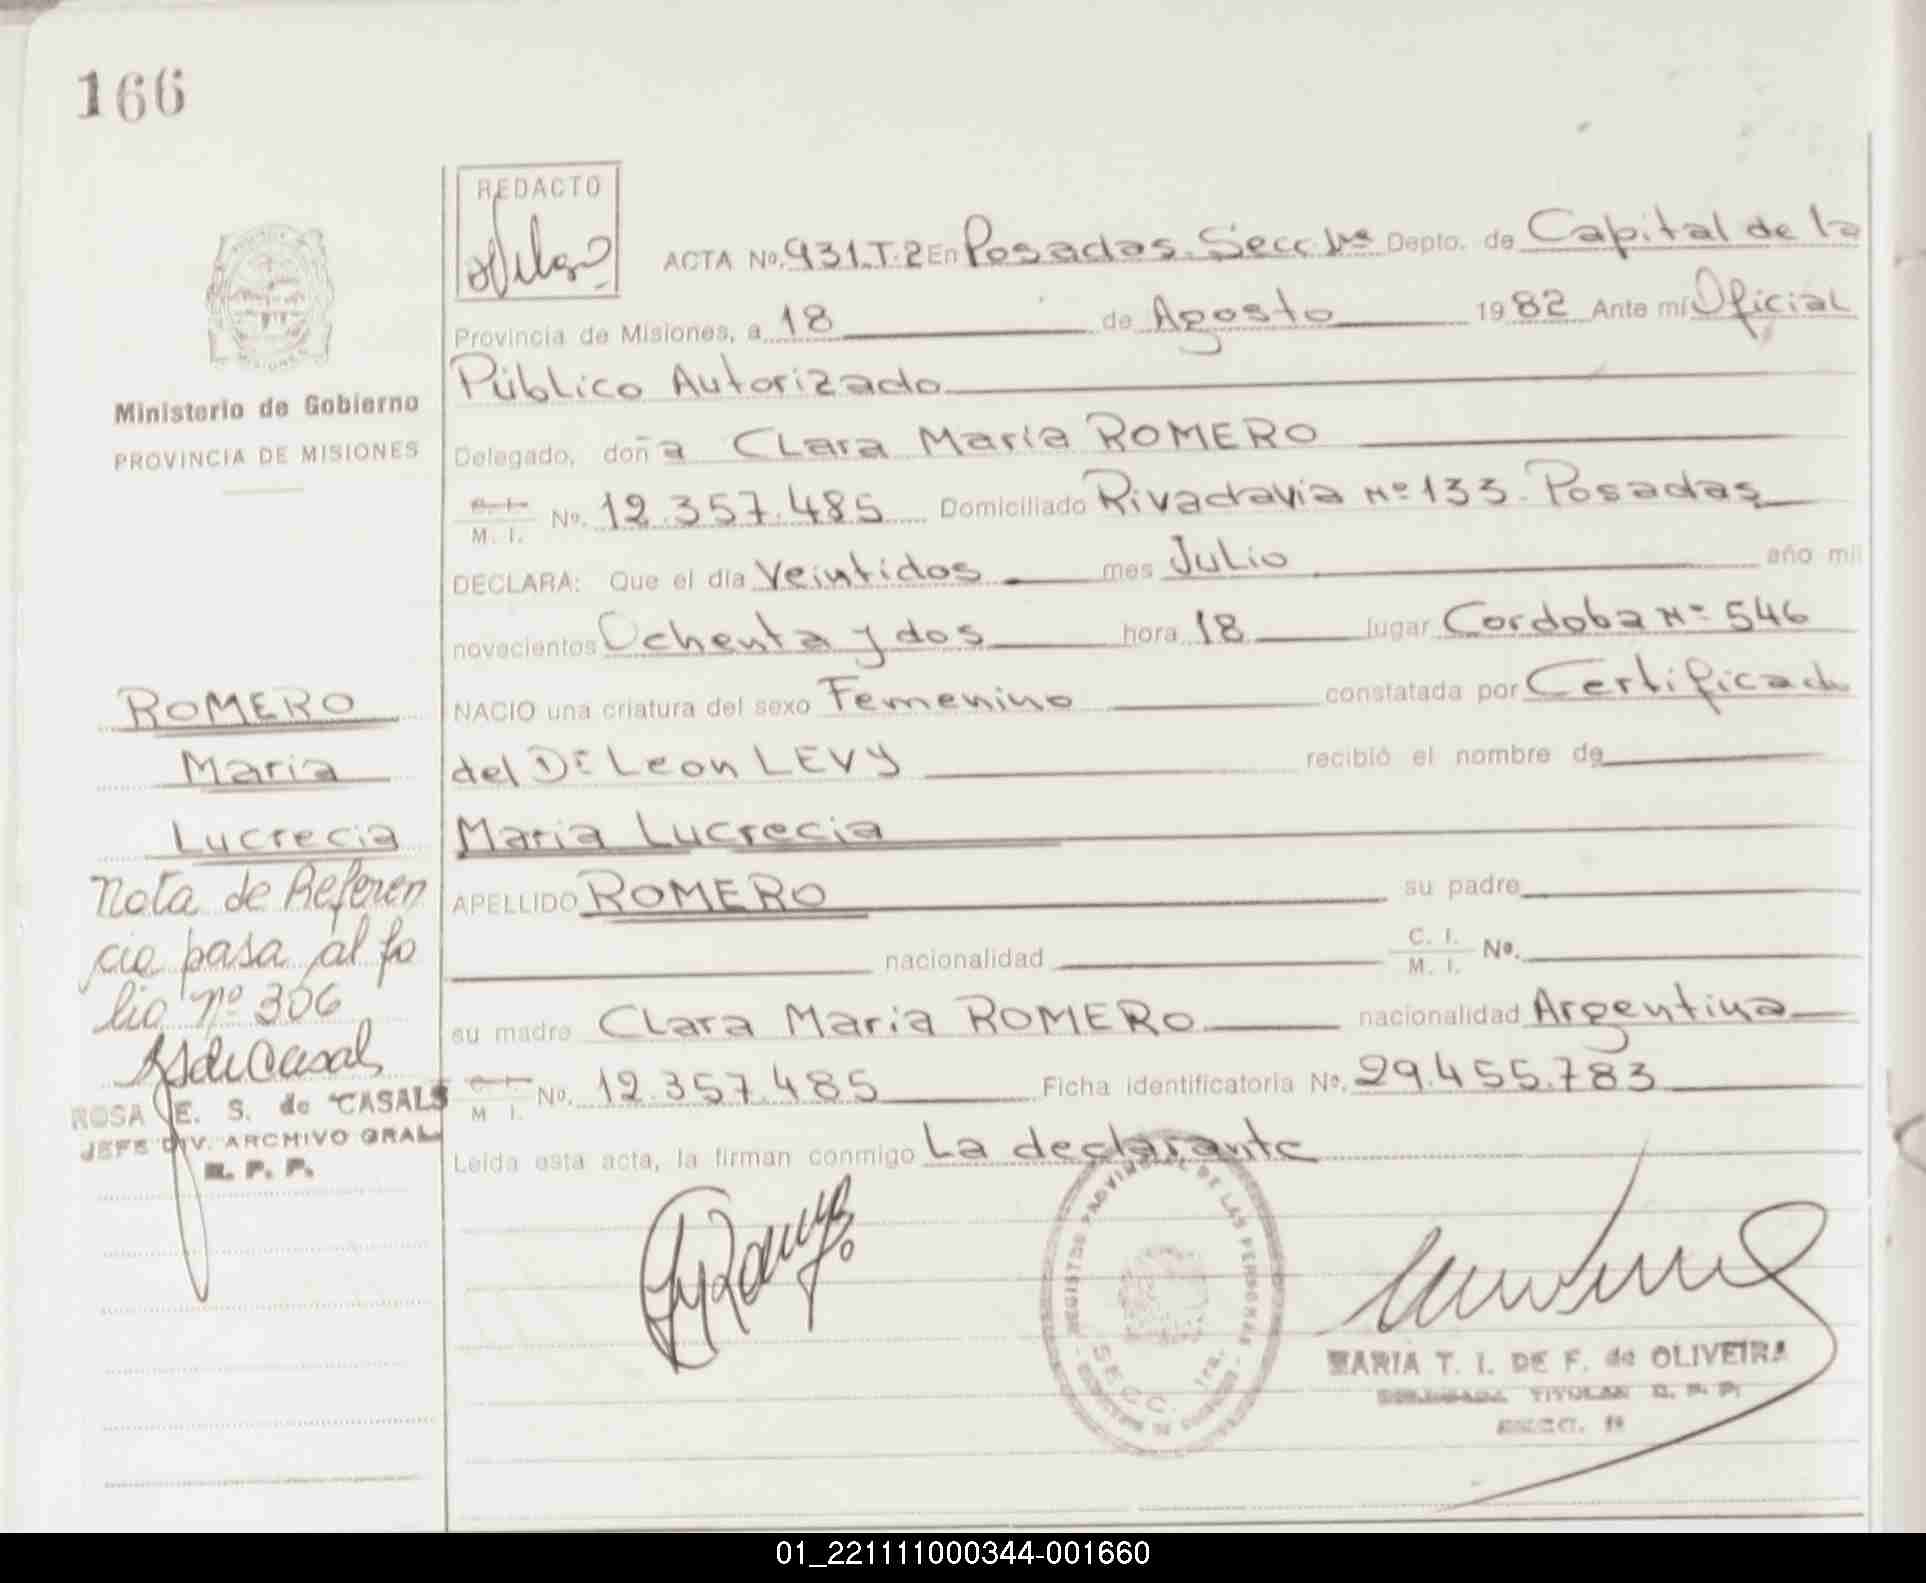 166
REDACTO
ACTA Nº. 931.T.2 En Posadas. Secc 1ra Depto. de Capital de la
Provincia de Misiones, a 18 de Agosto 1982 Ante mí Oficial
Público Autorizado
Delegado, doña Clara Maria ROMERO
C. I. / M. I. Nº. 12.357.485 Domiciliado Rivadavia Nº 133. Posadas
DECLARA: Que el día Veintidos mes Julio año mil
novecientos Ochenta y dos hora 18 lugar Cordoba Nº 546
NACIO una criatura del sexo Femenino constatada por Certificado
del Dr Leon LEVY recibió el nombre de
Maria Lucrecia
APELLIDO ROMERO su padre
nacionalidad C. I. / M. I. Nº.
su madre Clara Maria ROMERO nacionalidad Argentina
C. I. / M. I. Nº. 12.357.485 Ficha identificatoria Nº. 29.455.783
Leída esta acta, la firman conmigo La declarante
MISIONES
Ministerio de Gobierno
PROVINCIA DE MISIONES
ROMERO
Maria
Lucrecia
Nota de Referen
cia pasa al fo
lio nº 306
ROSA E. S. de CASALS
JEFE DIV. ARCHIVO GRAL
R. P. P.
REGISTRO PROVINCIAL DE LAS PERSONAS
SECC. 1ra.
MARIA T. I. DE F. de OLIVEIRA
DELEGADA TITULAR R. P. P.
01_221111000344-001660